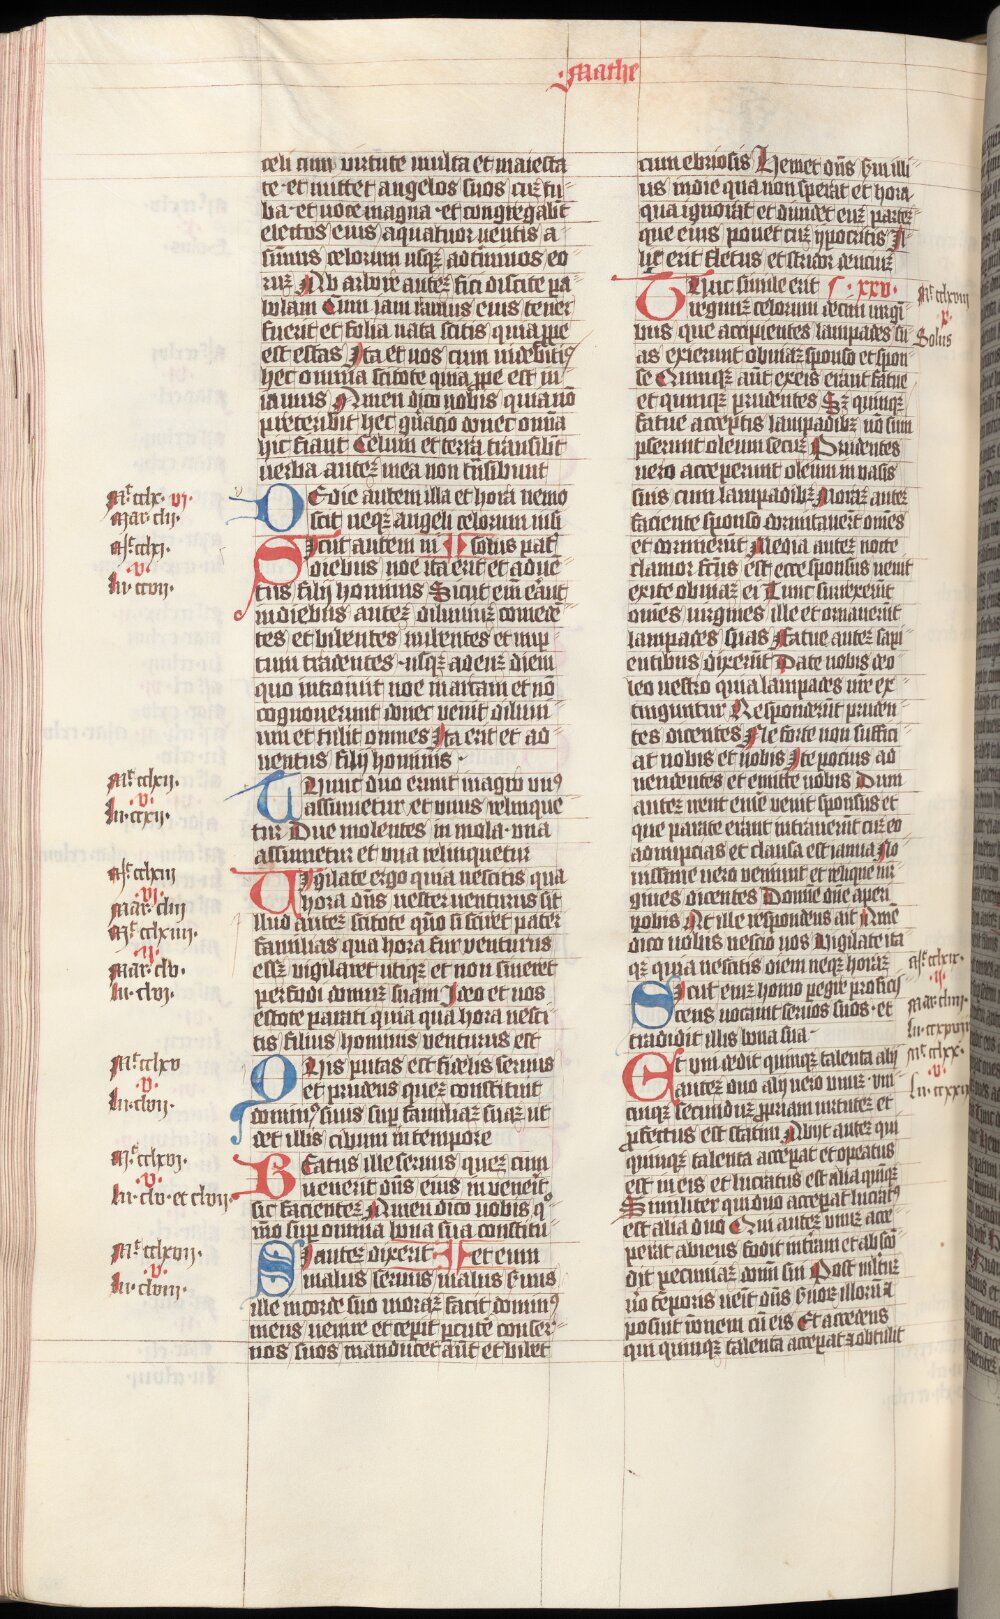 ·Mathe
celi cum virtute multa et maiesta
te· et mittet angelos suos cuꝫ tu
ba· et uoce magna· et congregabūt
electos eius a quatuor uentis a
summis celorum usqꝫ ad t̄minos eo
ruꝫ Ab arbore auteꝫ fici discite pa
bolam Cum iam ramus eius tener
fuerit et folia nata scitis quia ꝓpe
est estas Ita et uos cum uidebitis
hec omnia scitote quia ꝓpe est in
ianuis Amen dico uobis quia nō
preteribit hec gn̄acio donec omnia
hic fiant Celum et terra transibūt
uerba auteꝫ mea non trāsibunt
De die autem illa et hora nemo
scit neqꝫ angeli celorum nisi
Sicut autem in solus pat̄
diebus noe ita erit et adue
tus filij hominis Sicut em̄ erāt
in diebus auteꝫ diluuiuꝫ comedē
tes et bibentes nubentes et nup
tum tradentes· usqꝫ ad euꝫ diem
quo introiuit noe in arcam et nō
cognouerunt donec uenit diluui
um et tulit omnes Ita erit et ad
uentus filij hominis·
Tunc duo erunt in agro vn9
assumetur et unus relinque
tur Due molentes in mola· vna
assumetur et vna relinquetur
Vigilate ergo quia nescitis qua
hora dn̄s uester uenturus sit
Illud auteꝫ scitote qn̄o si sciret pater
familias qua hora fur venturus
esseꝫ vigilaret utiqꝫ et non sineret
perfodi domuꝫ suam Ideo et uos
estote parati quia qua hora nesci
tis filius hominis venturus est
Quis putas est fidelis seruus
et prudens queꝫ constituit
domin9 suus sup̄ familiaꝫ suaꝫ ut
det illis cibum in tempore
Beatus ille seruus queꝫ cum
uenerit dn̄s eius inuenerit
sic facienteꝫ Amen dico uobis qo
nīo sup̄ omnia bona sua constitu
Si auteꝫ dixerit et eum
malus seruus malus seruus
ille in corde suo moraꝫ facit domin9
meus uenire et cepit percute conser
uos suos manducet aūt et bibet
cum ebriosis Ueniet dn̄s serui illi
us in die qua non sperat et hora
qua ignorat et diuidet euꝫ parteꝫ
que eius ponet cuꝫ ypocritis Il
lic erit fletus et stridor denciuꝫ
Tunc simile erit c·xxv·
regnuꝫ celorum decem uirgi
bus que accipientes lampades su
as exierunt obuiaꝫ sponso et spon
se Quinqꝫ aūt ex eis erant fatue
et quinqꝫ prudentes Sꝫ quinqꝫ
fatue acceptis lampadibꝫ nō sum
pserunt oleum secuꝫ Prudentes
uero acceperunt oleum in uasis
suis cum lampadibꝫ Moraꝫ auteꝫ
faciente sponso dormitauerūt omēs
et dormierūt Media auteꝫ nocte
clamor fc̄us est ecce sponsus uenit
exite obuiaꝫ ei Tunc surrexerūt
omēs virgines ille et ornauerūt
lampades suas Fatue auteꝫ sapi
entibus dixerūt Date uobis de o
leo uestro quia lampades nr̄e ex
tinguntur Responderūt pruden
tes dicentes Ne forte non suffici
at nobis et uobis Ite pocius ad
uendentes et emite uobis Dum
auteꝫ irent emē venit sponsus et
que parate erant intrauerūt cuꝫ eo
ad nupcias et clausa est ianua No
uissime uero veniunt et relique uir
gines dicentes Domīe dn̄e aperi
nobis At ille respondens ait Amē
dico uobis nescio uos Vigilate ita
qꝫ quia nescitis diem neqꝫ horaꝫ
Sicut eniꝫ homo pegre profici
scens uocauit seruos suos· et
tradidit illis bona sua·
Et vni dedit quinqꝫ talenta alij
auteꝫ duo alij uero vnuꝫ· vni
cuiqꝫ secunduꝫ ꝓpriam virtuteꝫ et
ꝓfectus est statim Abijt auteꝫ qui
quinqꝫ talenta acceperat et operatus
est in eis et lucratus est alia quinqꝫ
Similiter qui duo acceperat lucrat9
est alia duo Qui auteꝫ vnuꝫ acce
perat abiens fodit in terram et abscō
dit pecuniaꝫ domī sui Post multuꝫ
uo tēporis uenit dn̄s seruoꝝ illorū et
posuit rōnem cū eis Et accedens
qui quinqꝫ talenta acceperat obtulit
Mt cclx· vi·
Mar· clii·
Mt cclxi·
·v·
lu· ccvii·
Mt cclxii·
·v·
lu· ccxii·
Mt cclxiii
·vi·
Mar· cliii
Mt cclxiiii·
·ii·
Mar· clv·
lu· clvi·
Mt cclxv
·v·
lu· clvii·
Mt cclxvi·
·v·
lu· clv· et clvii·
Mt cclxvii·
·v·
lu· clviii·
Mt cclxviii
·x·
Solus
Mt cclxix·
·ii·
Mar· cliiii·
Mt cclxx·
·v·